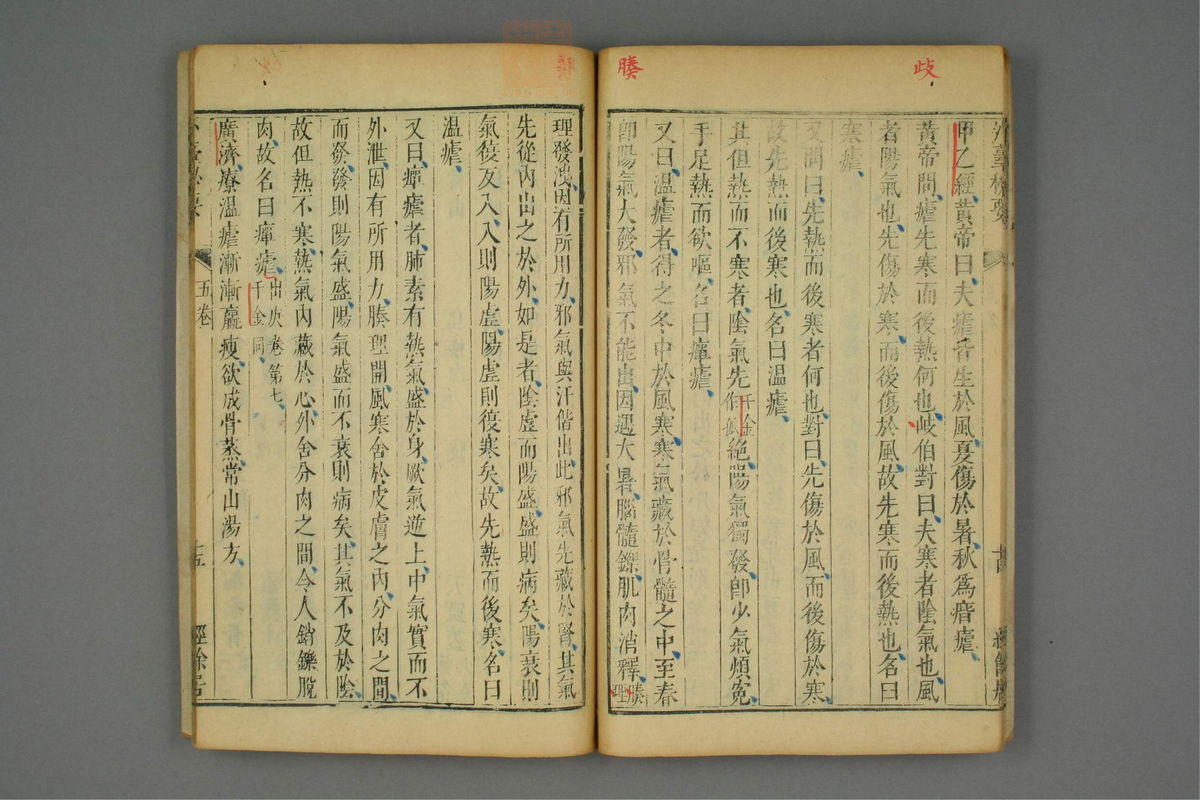 歧
腠
外臺秘要
甲乙經黃帝曰夫瘧皆生於風夏傷於暑秋爲痎瘧
黃帝問瘧先寒而後熱何也岐伯對曰夫寒者陰氣也風
者陽氣也先傷於寒而後傷於風故先寒而後熱也名曰
寒瘧
又問曰先熱而後寒者何也對曰先傷於風而後傷於寒
故先熱而後寒也名曰溫瘧
其但熱而不寒者陰氣先千金作孤絕陽氣獨發卽少氣煩寃
手足熱而欲嘔名曰癉瘧
又曰溫瘧者得之冬中於風寒寒氣藏於骨髓之中至春
卽陽氣大發邪氣不能出因遇大暑腦髓鑠肌肉消釋腠理
理發洩因有所用力邪氣與汗偕出此邪氣先藏於腎其氣
先從內出之於外如是者陰虛而陽盛盛則病矣陽衰則
氣復反入入則陽虛陽虛則復寒矣故先熱而後寒名曰
溫瘧
又曰癉瘧者肺素有熱氣盛於身厥氣逆上中氣實而不
外泄因有所用力腠理開風寒舍於皮膚之內分肉之間
而發發則陽氣盛陽氣盛而不衰則病矣其氣不及於陰
故但熱不寒熱氣內藏於心外舍分肉之間令人銷鑠脫
肉故名曰癉瘧出庚卷第七千金同
廣濟療溫瘧漸漸羸瘦欲成骨蒸常山湯方
五卷
十五
經餘居